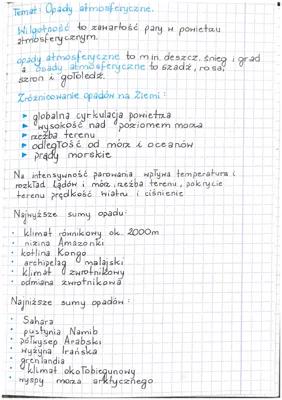 Temat: Opady atmosferyczne.
Wilgotność to zawartość pary w powietrzu
atmosferycznym.
opady atmosferyczne to m in. deszcz, śnieg i grad
a osady atmosferyczne to szadź, rosa,
szron i gołoledź.
Zróżnicowanie opadów na Ziemi:
▸ globalna cyrkulacja powietrza
▸ wysokość nad poziomem morza
▸ rzeźba terenu
▸ odległość od mórz i oceanów
▸ prądy morskie
Na intensywność parowania wpływa temperatura i
rozkład lądów i mórz, rzeźba terenu, pokrycie
terenu prędkość wiatru i ciśnienie
Najwyższe sumy opadu:
• klimat równikowy ok. 2000m
• nizina Amazonki
• kotlina Kongo
• archipelag malajski
• klimat zwrotnikowy
• odmiana zwrotnikowa
Najniższe sumy opadów:
• Sahara
• pustynia Namib
• półwysep Arabski
• wyżyna Irańska
• grenlandia
• klimat okołobiegunowy
• wyspy morza arktycznego